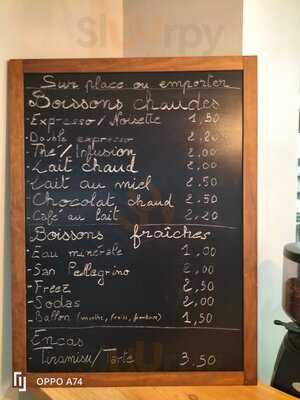 Sur place ou emporter
Boissons chaudes
- Expresso / Noisette 1,50
- Double expresso 2,20
- Thé / Infusion 2,00
- Lait chaud 2,00
- Lait au miel 2.50
- Chocolat chaud 2.50
- Café au lait 2,20
Boissons fraîches
- Eau minérale 1,00
- San Pellegrino 2,00
- Freez 2,50
- Sodas 2,00
- Ballon (menthe, fraise, ) 1,50
Encas
- Tiramisu / Tarte 3,50
OPPO A74